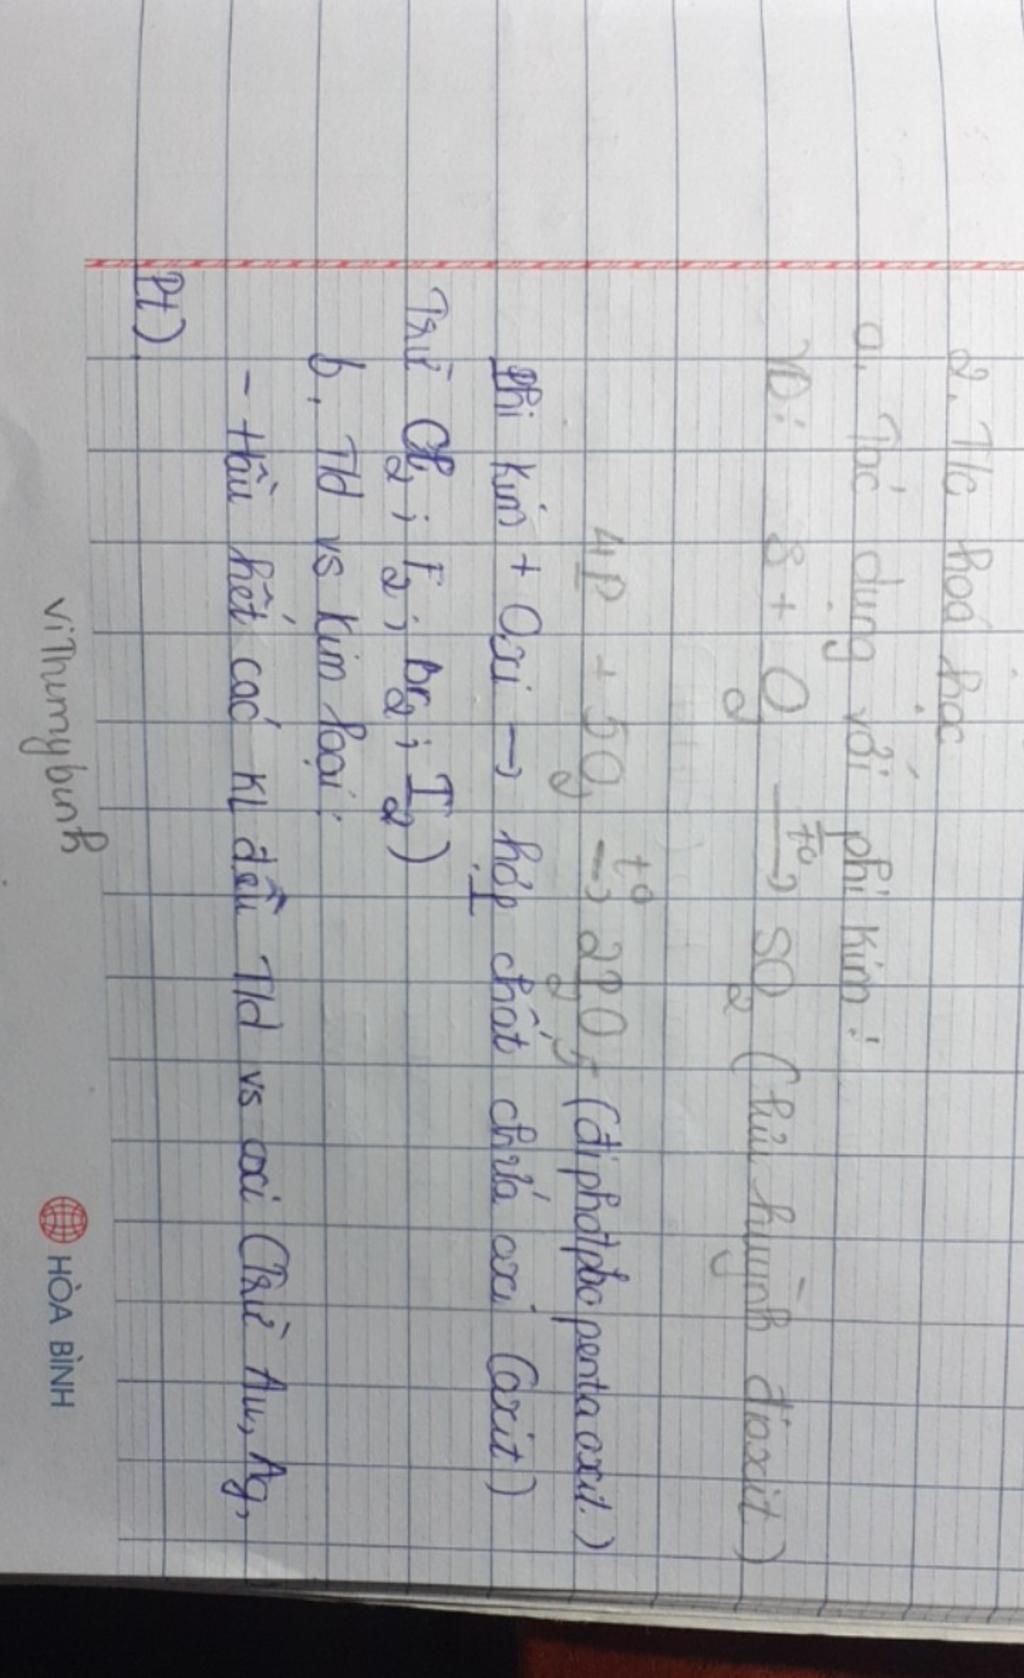 2, T/c hoá học
a, Tác dụng với phi kim:
VD: S + O₂ —t°→ SO₂ (lưu huỳnh đioxit)
4P + 5O₂ —t°→ 2P₂O₅ (điphotpho pentaoxit.)
Phi kim + Oxi → hợp chất chứa oxi (oxit)
Trừ Cl₂; F₂; Br₂; I₂)
b, T/d vs kim loại:
- Hầu hết các KL đều T/d vs oxi (Trừ Au, Ag,
Pt).
vithumybinh
HÒA BÌNH